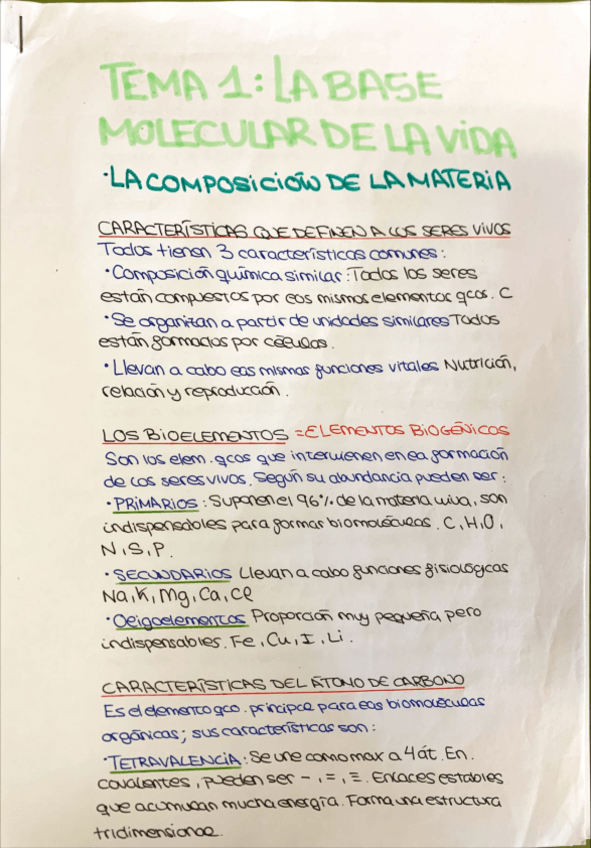 TEMA 1: LA BASE
MOLECULAR DE LA VIDA
·LA COMPOSICIÓN DE LA MATERIA
CARACTERÍSTICAS QUE DEFINEN A LOS SERES VIVOS
Todos tienen 3 características comunes:
·Composición química similar: Todos los seres
están compuestos por los mismos elementos qcos. C
·Se organizan a partir de unidades similares Todos
están formados por células.
·Llevan a cabo las mismas funciones vitales Nutrición,
relación y reproducción.
LOS BIOELEMENTOS = ELEMENTOS BIOGÉNICOS
Son los elem. qcos que intervienen en la formación
de los seres vivos. Según su abundancia pueden ser:
·PRIMARIOS: Suponen el 96% de la materia viva, son
indispensables para formar biomoléculas. C, H, O,
N, S, P.
·SECUNDARIOS Llevan a cabo funciones fisiológicas
Na, K, Mg, Ca, Cl
·Oligoelementos Proporción muy pequeña pero
indispensables. Fe, Cu, I, Li.
CARACTERÍSTICAS DEL ÁTOMO DE CARBONO
Es el elemento qco. principal para las biomoléculas
orgánicas; sus características son:
·TETRAVALENCIA: Se une como max a 4 át. En.
covalentes, pueden ser -, =, ≡. Enlaces estables
que acumulan mucha energía. Forma una estructura
tridimensional.